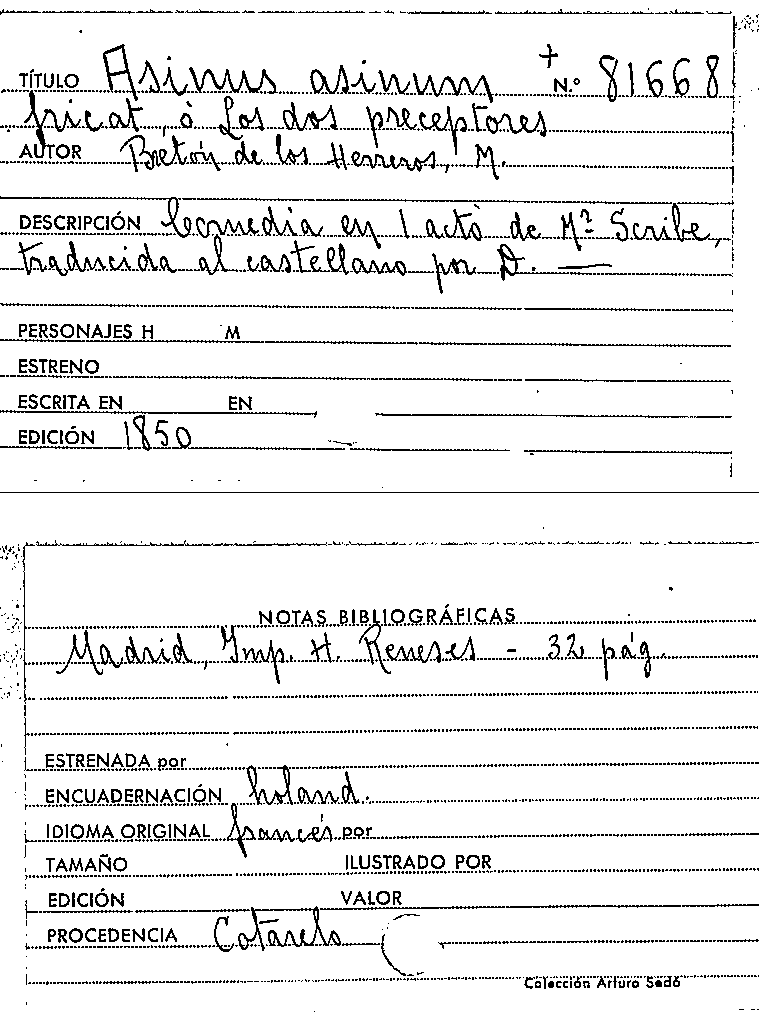 TÍTULO Asinus asinum + N.º 81668
fricat, ò Los dos preceptores
AUTOR Bretón de los Herreros, M.
DESCRIPCIÓN Comedia en 1 acto de Mr. Scribe,
traducida al castellano por D. —
PERSONAJES H M
ESTRENO
ESCRITA EN EN
EDICIÓN 1850
NOTAS BIBLIOGRÁFICAS
Madrid, Imp. H. Reneses - 32 pág.
ESTRENADA por
ENCUADERNACIÓN holand.
IDIOMA ORIGINAL francés por
TAMAÑO ILUSTRADO POR
EDICIÓN VALOR
PROCEDENCIA Cotarelo
Colección Arturo Sedó